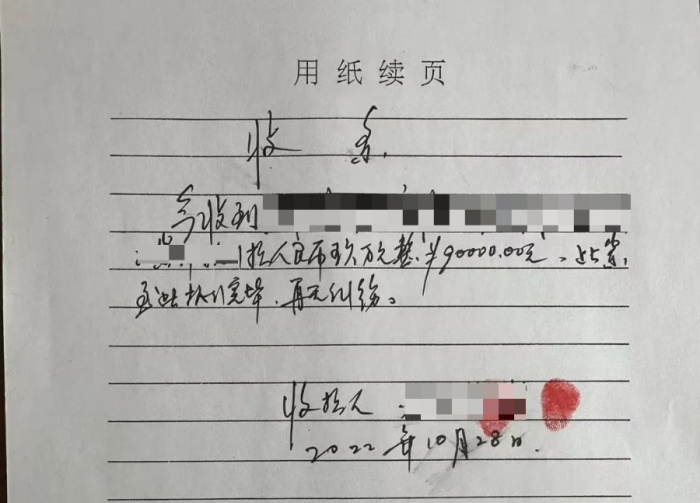 用纸续页
收条
今收到
人民币玖万元整¥90000.00元、此案
至此执行完毕,再无纠纷。
收款人
2022年10月28日.